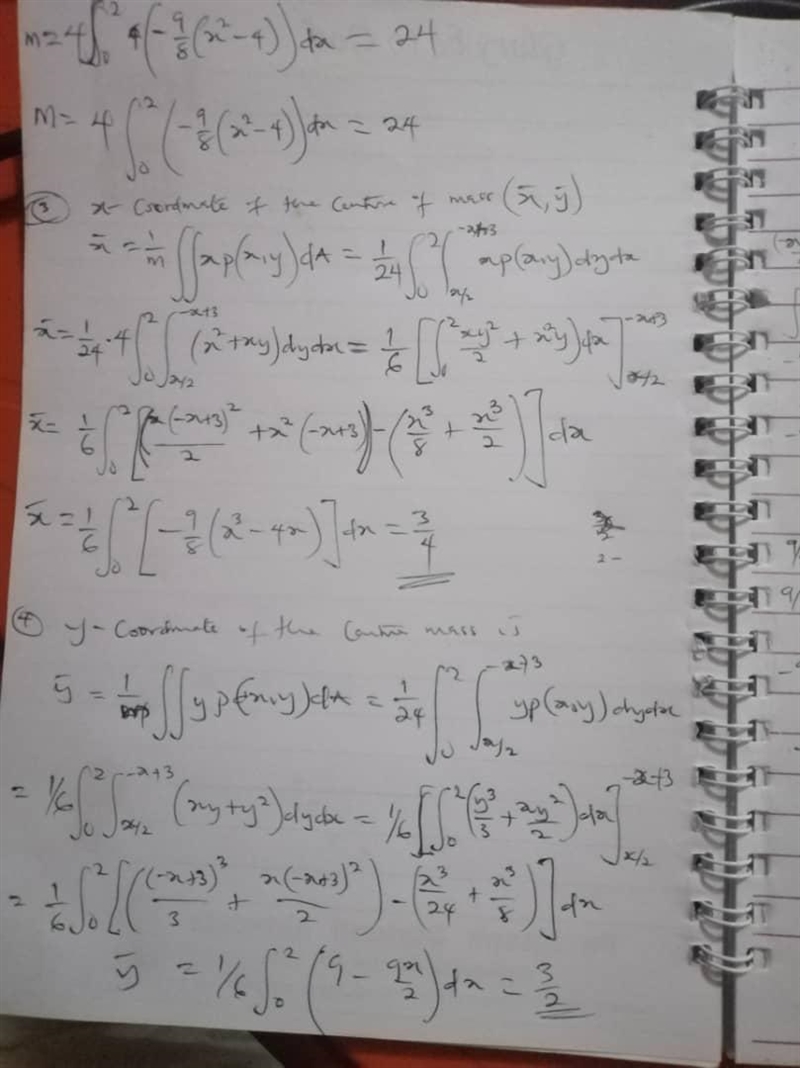 m = 4∫₀² 4(-9/8(x²-4))dx = 24
M = 4∫₀²(-9/8(x²-4))dx = 24
③ x-coordinate of the centre of mass (x̄, ȳ)
x̄ = 1/m ∬xρ(x,y)dA = 1/24 ∫₀² ∫_{x/2}^{-x+3} xρ(x,y)dydx
x̄ = 1/24 · 4∫₀² ∫_{x/2}^{-x+3} (x²+xy)dydx = 1/6 [∫₀² xy²/2 + x²y)dx]_{x/2}^{-x+3}
x̄ = 1/6 ∫₀² [(x(-x+3)²/2 + x²(-x+3)) - (x³/8 + x³/2)]dx
x̄ = 1/6 ∫₀² [-9/8(x³-4x)]dx = 3/4
2-
④ y-coordinate of the centre mass is
ȳ = 1/m ∬yρ(x,y)dA = 1/24 ∫₀² ∫_{x/2}^{-x+3} yρ(x,y)dydx
= 1/6 ∫₀² ∫_{x/2}^{-x+3} (xy+y²)dydx = 1/6 [∫₀² (y³/3 + xy²/2)dx]_{x/2}^{-x+3}
= 1/6 ∫₀² [((-x+3)³/3 + x(-x+3)²/2) - (x³/24 + x³/8)]dx
ȳ = 1/6 ∫₀² (9 - 9x/2)dx = 3/2
9/
9/